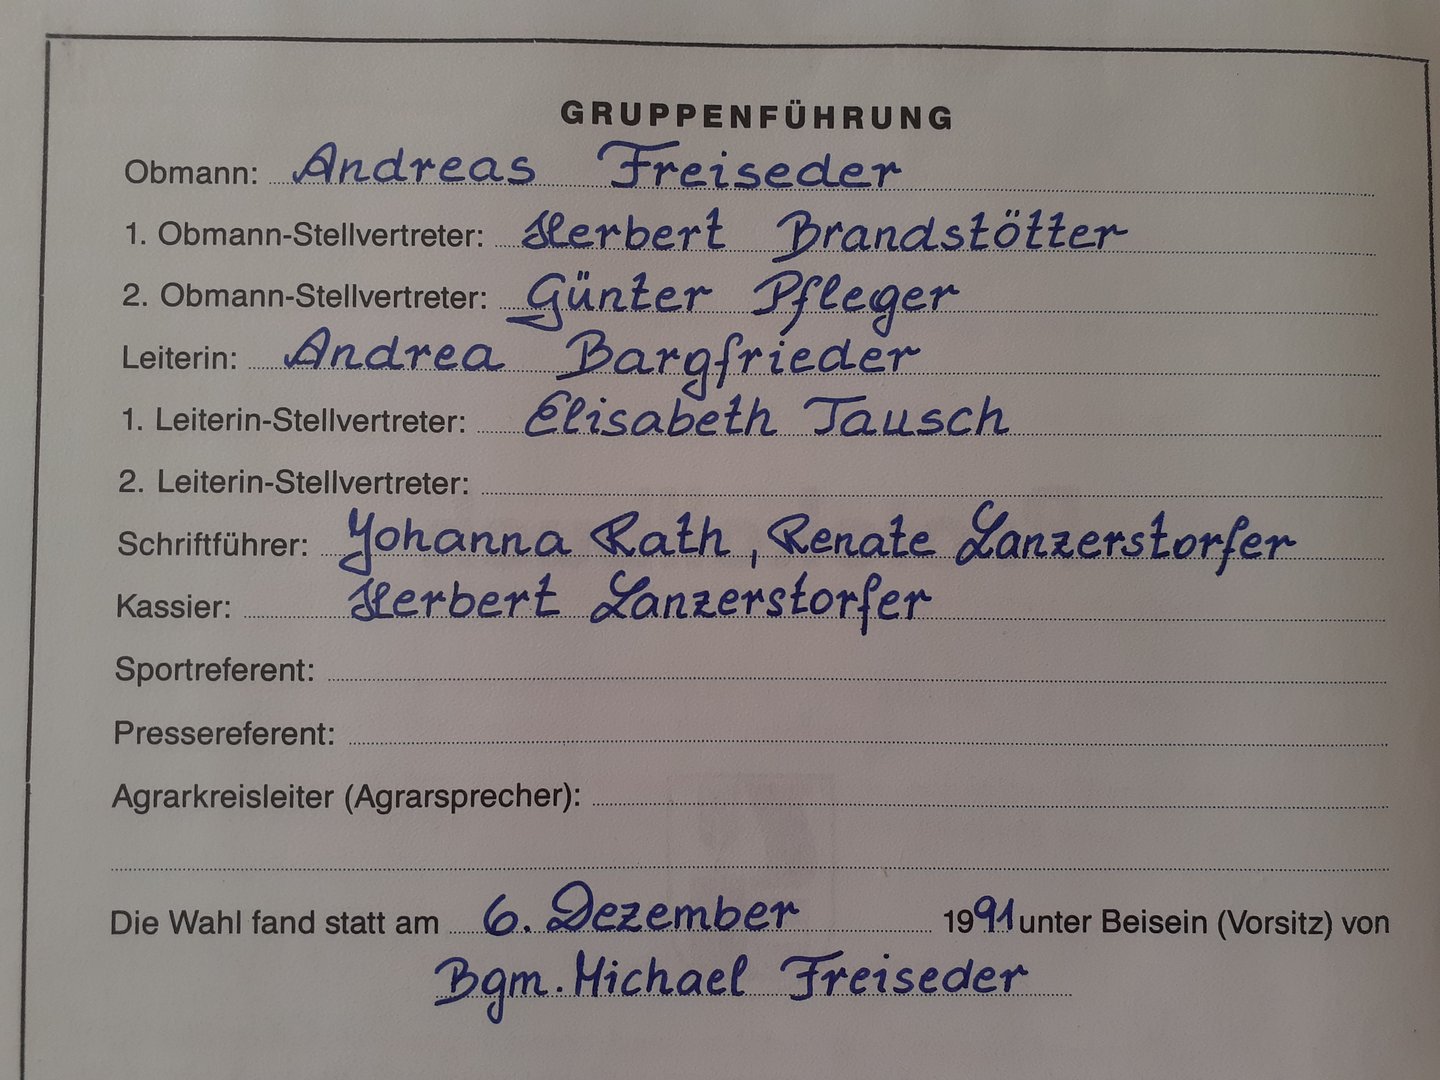 GRUPPENFÜHRUNG
Obmann: Andreas Freiseder
1. Obmann-Stellvertreter: Herbert Brandstötter
2. Obmann-Stellvertreter: Günter Pfleger
Leiterin: Andrea Bargfrieder
1. Leiterin-Stellvertreter: Elisabeth Tausch
2. Leiterin-Stellvertreter:
Schriftführer: Johanna Rath, Renate Lanzerstorfer
Kassier: Herbert Lanzerstorfer
Sportreferent:
Pressereferent:
Agrarkreisleiter (Agrarsprecher):
Die Wahl fand statt am 6. Dezember 1991 unter Beisein (Vorsitz) von
Bgm. Michael Freiseder